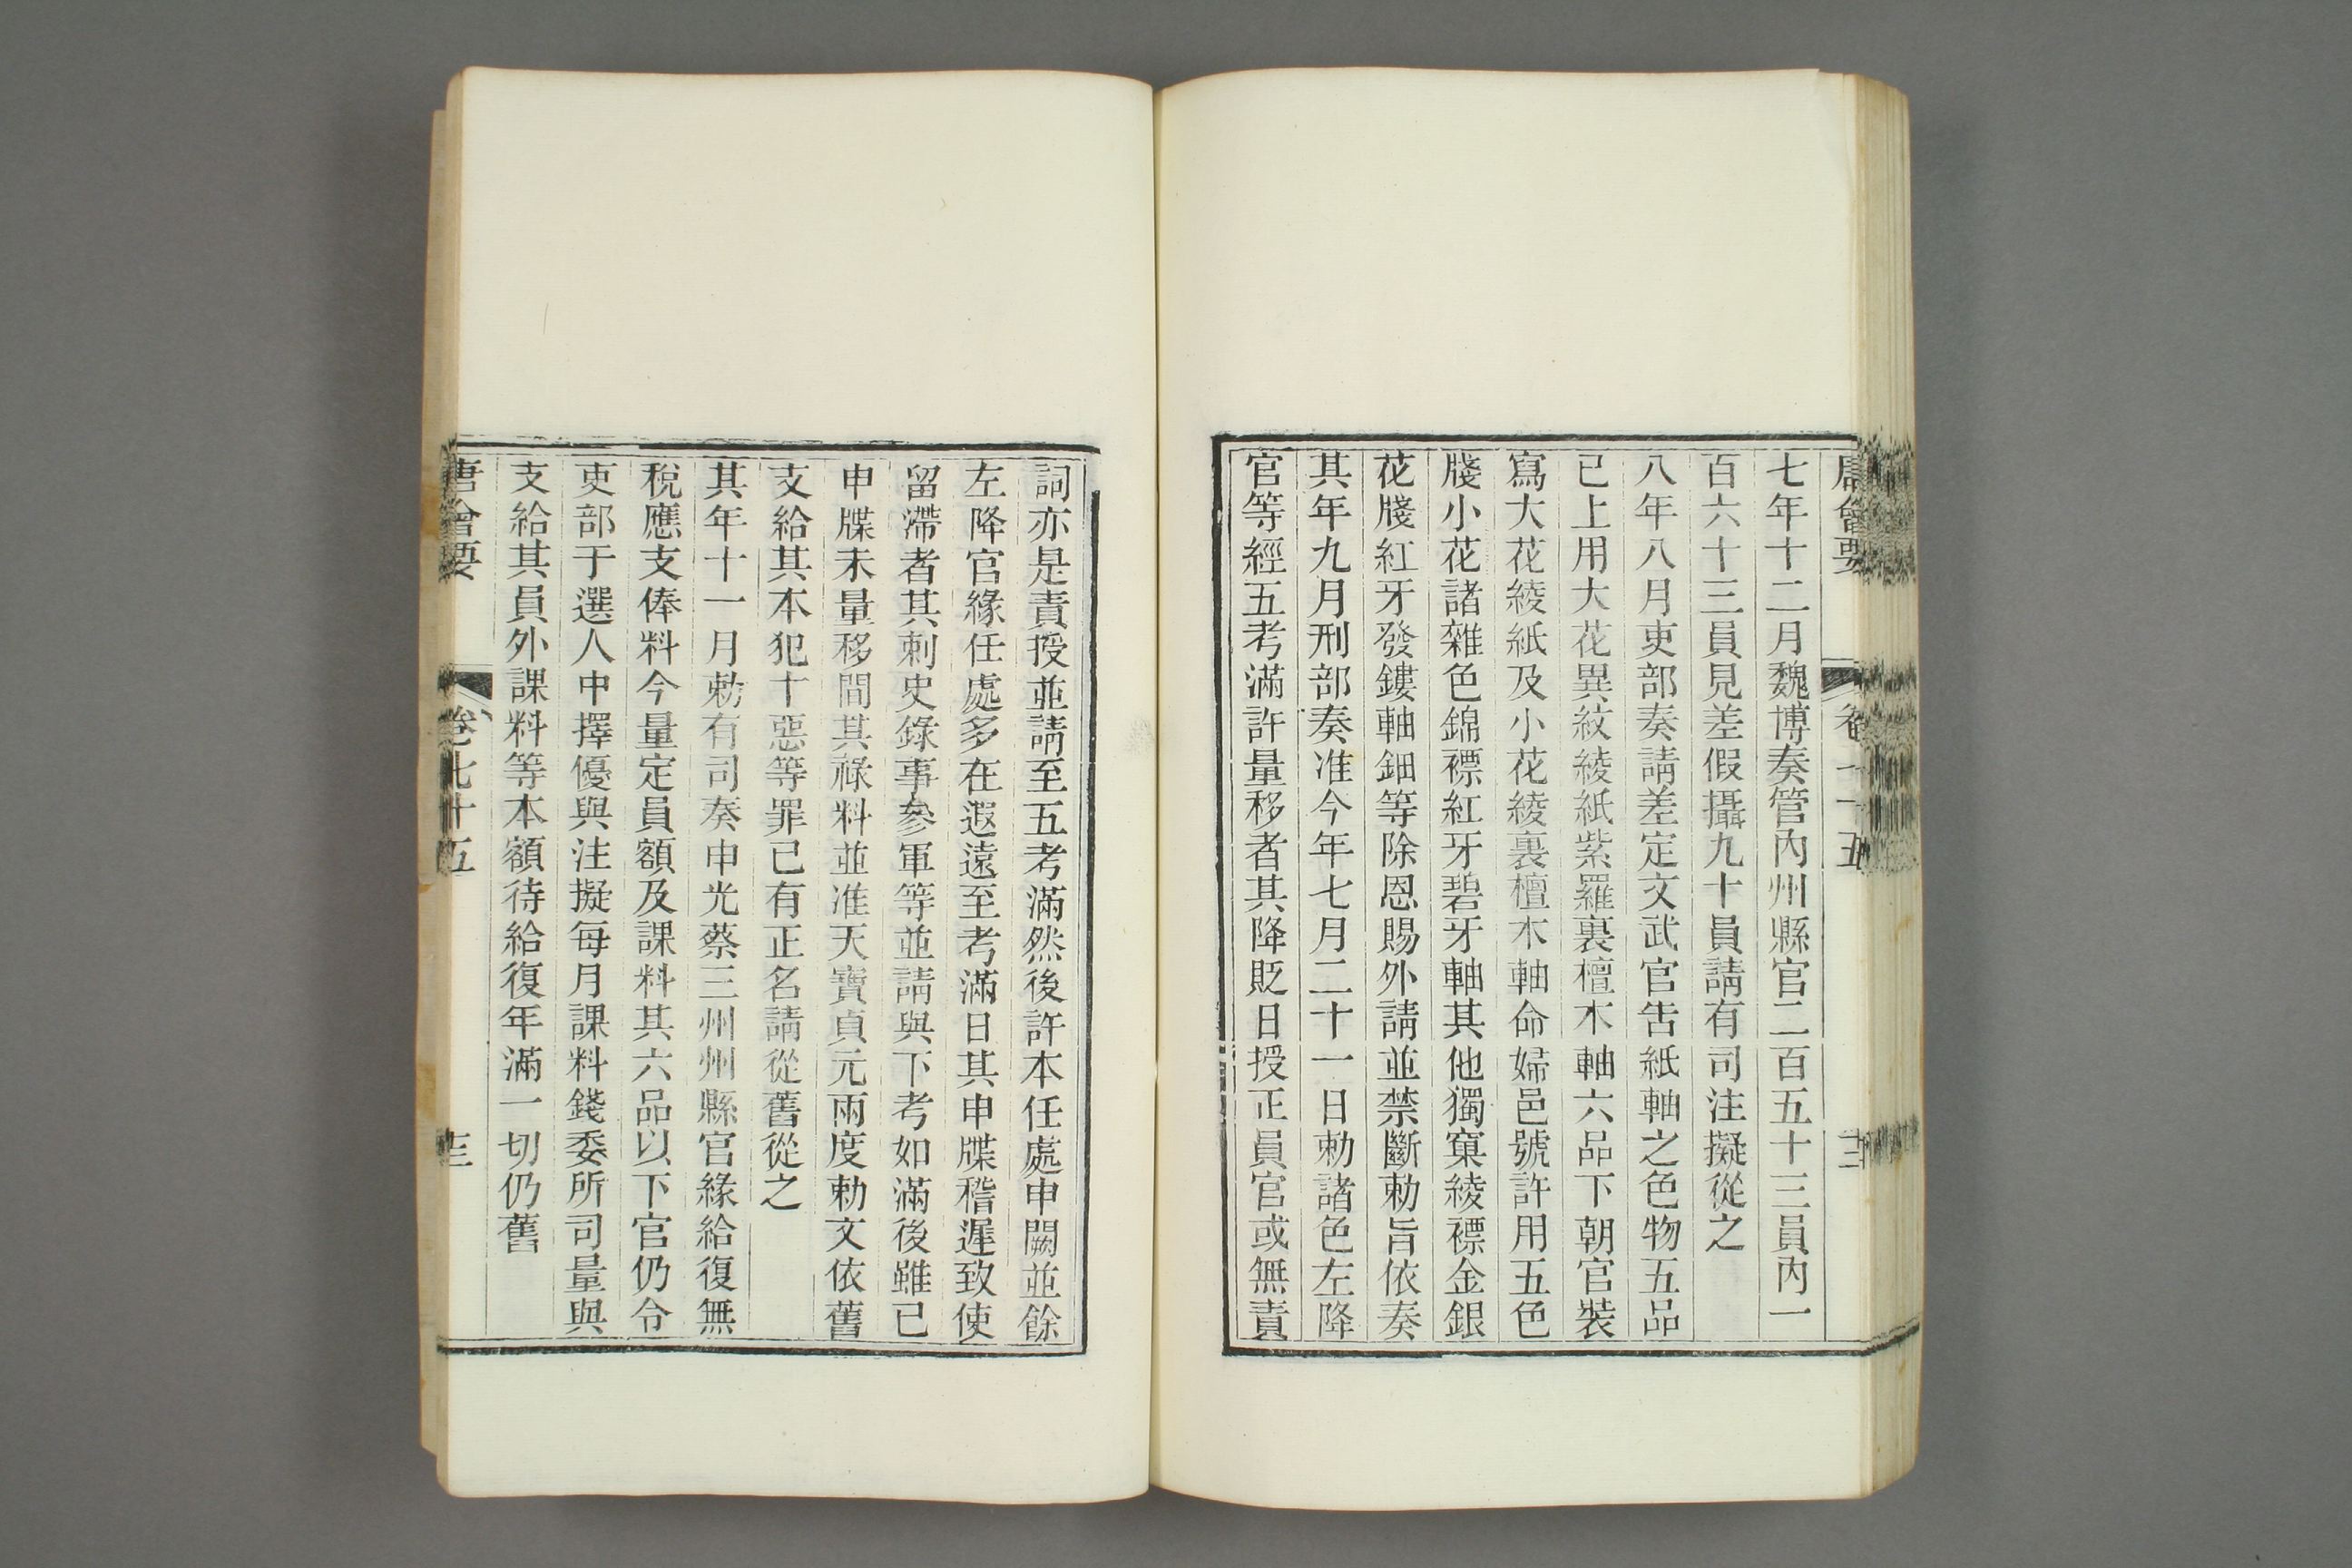 唐會要 卷七十五
七年十二月魏博奏管內州縣官二百五十三員內一
百六十三員見差假攝九十員請有司注擬從之
八年八月吏部奏請差定文武官告紙軸之色物五品
已上用大花異紋綾紙紫羅裏檀木軸六品下朝官裝
寫大花綾紙及小花綾裏檀木軸命婦邑號許用五色
牋小花諸雜色錦褾紅牙碧牙軸其他獨窠綾褾金銀
花牋紅牙發鏤軸鈿等除恩賜外請並禁斷勅旨依奏
其年九月刑部奏准今年七月二十一日勅諸色左降
官等經五考滿許量移者其降貶日授正員官或無責
詞亦是責授並請至五考滿然後許本任處申闕並餘
左降官緣任處多在遐遠至考滿日其申牒稽遲致使
留滯者其刺史錄事參軍等並請與下考如滿後雖已
申牒未量移間其祿料並准天寶貞元兩度勅文依舊
支給其本犯十惡等罪已有正名請從舊從之
其年十一月勅有司奏申光蔡三州州縣官緣給復無
稅應支俸料今量定員額及課料其六品以下官仍令
吏部于選人中擇優與注擬每月課料錢委所司量與
支給其員外課料等本額待給復年滿一切仍舊
唐會要 卷七十五